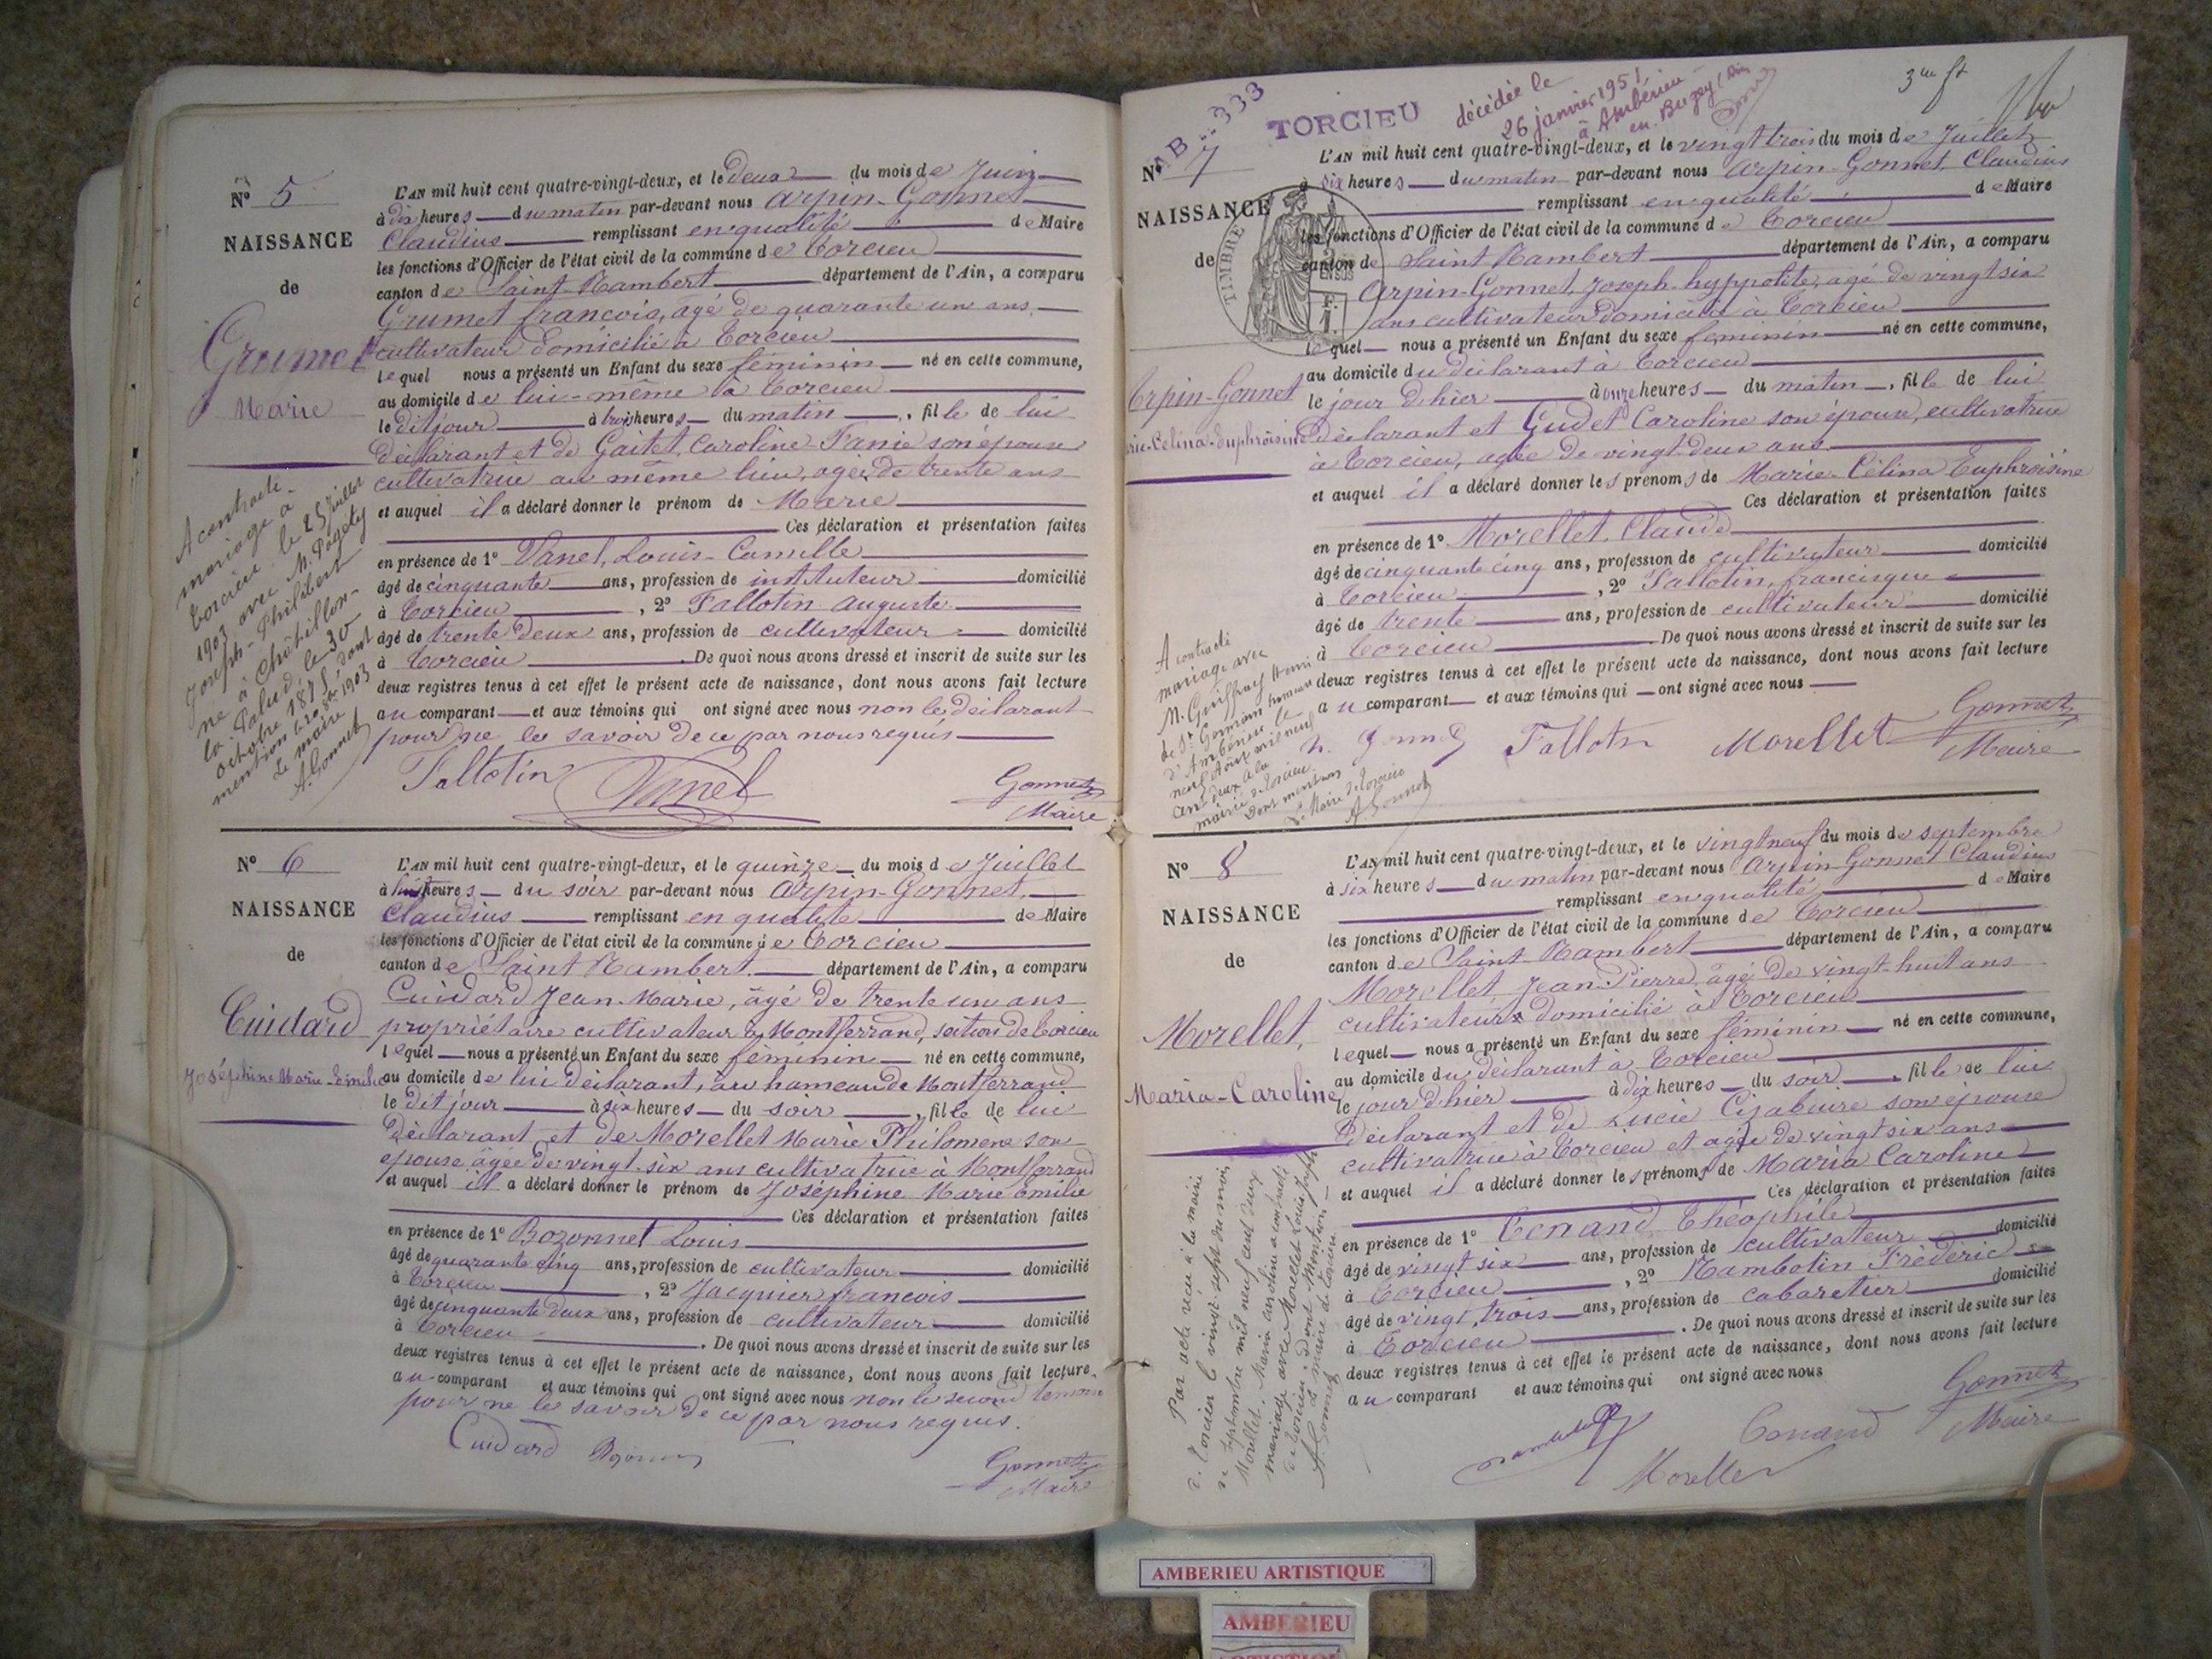 Nº 5
NAISSANCE
de
Grumet
Marie
L'AN mil huit cent quatre-vingt-deux, et le deux du mois de Juin
à dix heures du matin par-devant nous Arpin-Gonnet
Claudius remplissant en qualité de Maire
les fonctions d'Officier de l'état civil de la commune de Torcieu
canton de Saint Rambert département de l'Ain, a comparu
Grumet françois, âgé de quarante un ans,
cultivateur domicilié à Torcieu
lequel nous a présenté un Enfant du sexe féminin né en cette commune,
au domicile de lui-même à Torcieu
le dit jour à trois heures du matin, fille de lui
déclarant et de Gaitet, Caroline-Fanie son épouse
cultivatrice au même lieu, agée de trente ans
et auquel il a déclaré donner le prénom de Marie
Ces déclaration et présentation faites
en présence de 1º Vanel, Louis-Camille
âgé de cinquante ans, profession de instituteur domicilié
à Torcieu, 2º Fallotin Auguste
âgé de trente deux ans, profession de cultivateur domicilié
à Torcieu. De quoi nous avons dressé et inscrit de suite sur les
deux registres tenus à cet effet le présent acte de naissance, dont nous avons fait lecture
au comparant et aux témoins qui ont signé avec nous non le déclarant
pour ne le savoir de ce par nous requis
Fallotin Vanel Gonnet
Maire
A contracté
mariage à
Torcieu le 25 juillet
1903 avec M. Pagety
Joseph-Philibert
né à Châtillon-
la-Palud, le 30
octobre 1878, dont
mention le 20 1903
Le maire
A. Gonnet
Nº 6
NAISSANCE
de
Cuidard
Joséphine Marie-Emilie
L'AN mil huit cent quatre-vingt-deux, et le quinze du mois de Juillet
à huit heures du soir par-devant nous Arpin-Gonnet,
Claudius remplissant en qualité de Maire
les fonctions d'Officier de l'état civil de la commune de Torcieu
canton de Saint Rambert département de l'Ain, a comparu
Cuidard Jean-Marie, âgé de trente un ans
propriétaire cultivateur à Montferrand, section de Torcieu
lequel nous a présenté un Enfant du sexe féminin né en cette commune,
au domicile de lui déclarant, au hameau de Montferrand
le dit jour à six heures du soir, fille de lui
déclarant et de Morellet Marie Philomène son
épouse âgée de vingt-six ans cultivatrice à Montferrand
et auquel il a déclaré donner le prénom de Joséphine Marie Emilie
Ces déclaration et présentation faites
en présence de 1º Bozonnet Louis
âgé de quarante cinq ans, profession de cultivateur domicilié
à Torcieu, 2º Jacquier françois
âgé de cinquante deux ans, profession de cultivateur domicilié
à Torcieu. De quoi nous avons dressé et inscrit de suite sur les
deux registres tenus à cet effet le présent acte de naissance, dont nous avons fait lecture
au comparant et aux témoins qui ont signé avec nous non le second temoin
pour ne le savoir de ce par nous requis.
Cuidard Gonnet
Maire
MB..333
TORCIEU
décédée le
26 janvier 1951
à Ambérieu-
en-Bugey (Ain)
Nº 7
NAISSANCE
de
TIMBRE
Arpin-Gonnet
Célina-Euphroisine
L'AN mil huit cent quatre-vingt-deux, et le vingt trois du mois de Juillet
à dix heures du matin par-devant nous Arpin-Gonnet, Claudius
remplissant en qualité de Maire
les fonctions d'Officier de l'état civil de la commune de Torcieu
canton de Saint Rambert département de l'Ain, a comparu
Arpin-Gonnet, Joseph-hyppolite, agé de vingt six
ans cultivateur domicilié à Torcieu
lequel nous a présenté un Enfant du sexe feminin né en cette commune,
au domicile du déclarant à Torcieu
le jour d'hier à onze heures du matin, fille de lui
déclarant et Gudet Caroline son épouse, cultivatrice
à Torcieu, agée de vingt-deux ans
et auquel il a déclaré donner les prénoms de Marie-Célina Euphroisine
Ces déclaration et présentation faites
en présence de 1º Morellet, Claude
âgé de cinquante cinq ans, profession de cultivateur domicilié
à Torcieu, 2º Fallotin, francisque
âgé de trente ans, profession de cultivateur domicilié
à Torcieu. De quoi nous avons dressé et inscrit de suite sur les
deux registres tenus à cet effet le présent acte de naissance, dont nous avons fait lecture
au comparant et aux témoins qui ont signé avec nous
Fallotin Morellet Gonnet
Maire
A contracté
mariage avec
M.
de St Germain hameau
d'Ambérieu le
neuf Août mil neuf
cent deux à la
mairie de Torcieu
Dont mention
Le Maire de Torcieu
A Gonnet
Nº 8
NAISSANCE
de
Morellet,
Maria-Caroline
L'AN mil huit cent quatre-vingt-deux, et le vingt neuf du mois de septembre
à six heures du matin par-devant nous Arpin-Gonnet Claudius
remplissant en qualité de Maire
les fonctions d'Officier de l'état civil de la commune de Torcieu
canton de Saint-Rambert département de l'Ain, a comparu
Morellet Jean Pierre, âgé de vingt-huit ans
cultivateur domicilié à Torcieu
lequel nous a présenté un Enfant du sexe féminin né en cette commune,
au domicile du déclarant à Torcieu
le jour d'hier à dix heures du soir, fille de lui
déclarant et de Lucie son épouse
cultivatrice à Torcieu et agée de vingt six ans
et auquel il a déclaré donner les prénoms de Maria Caroline
Ces déclaration et présentation faites
en présence de 1º Tenand Théophile
âgé de vingt six ans, profession de cultivateur domicilié
à Torcieu, 2º Rambotin Frédéric
âgé de vingt trois ans, profession de cabaretier domicilié
à Torcieu. De quoi nous avons dressé et inscrit de suite sur les
deux registres tenus à cet effet le présent acte de naissance, dont nous avons fait lecture
au comparant et aux témoins qui ont signé avec nous
Tenand Gonnet
Morellet Maire
Par acte reçu à la mairie
de Torcieu le vingt sept du mois
de septembre mil neuf cent deux
Morellet Maria Caroline a contracté
mariage avec Morellet Louis Joseph
de Torcieu dont Mention
Le maire de Torcieu
A Gonnet
AMBERIEU ARTISTIQUE
AMBERIEU
ARTISTIQUE